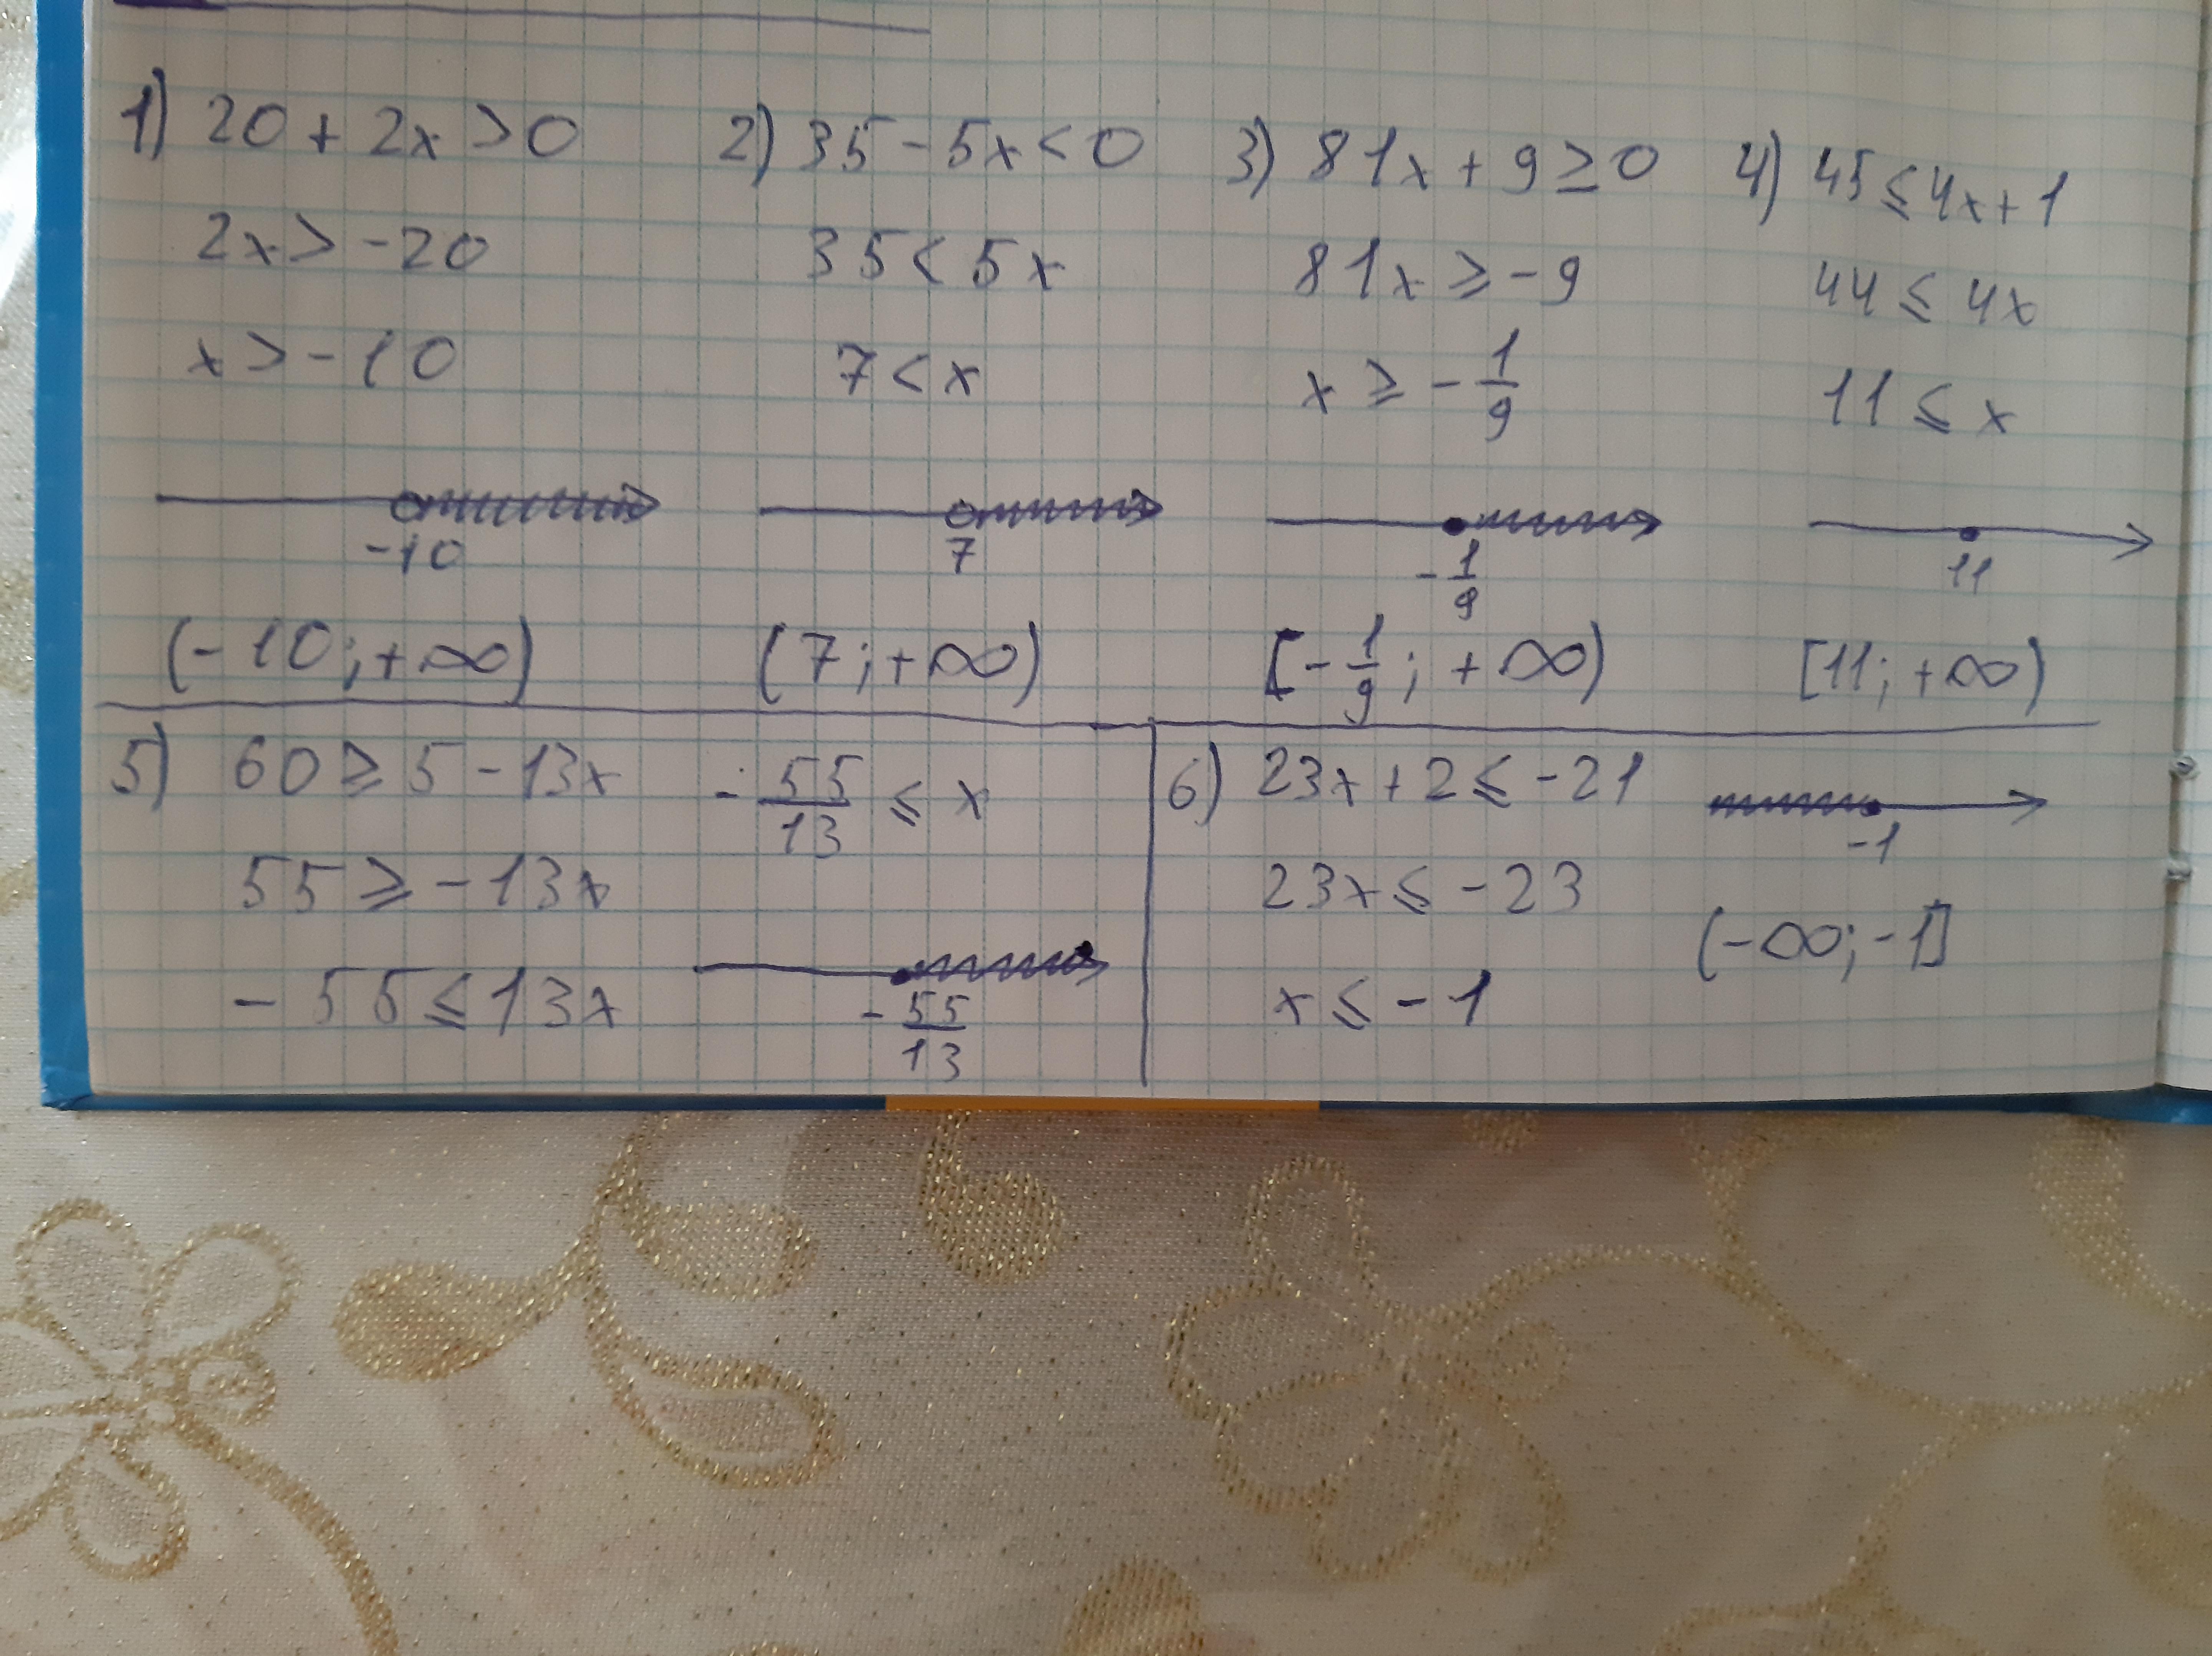 1) 20 + 2x > 0
2x > -20
x > -10
-10
(-10; +∞)
2) 35 - 5x < 0
35 < 5x
7 < x
7
(7; +∞)
3) 81x + 9 ≥ 0
81x ≥ -9
x ≥ -1/9
-1/9
[-1/9; +∞)
4) 45 ≤ 4x + 1
44 ≤ 4x
11 ≤ x
11
[11; +∞)
5) 60 ≥ 5 - 13x
55 ≥ -13x
-55 ≤ 13x
-55/13 ≤ x
-55/13
6) 23x + 2 ≤ -21
23x ≤ -23
x ≤ -1
-1
(-∞; -1]